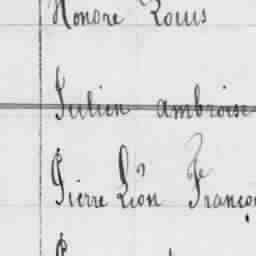 Honoré Louis
Julien Ambroise
Pierre Léon Françoi